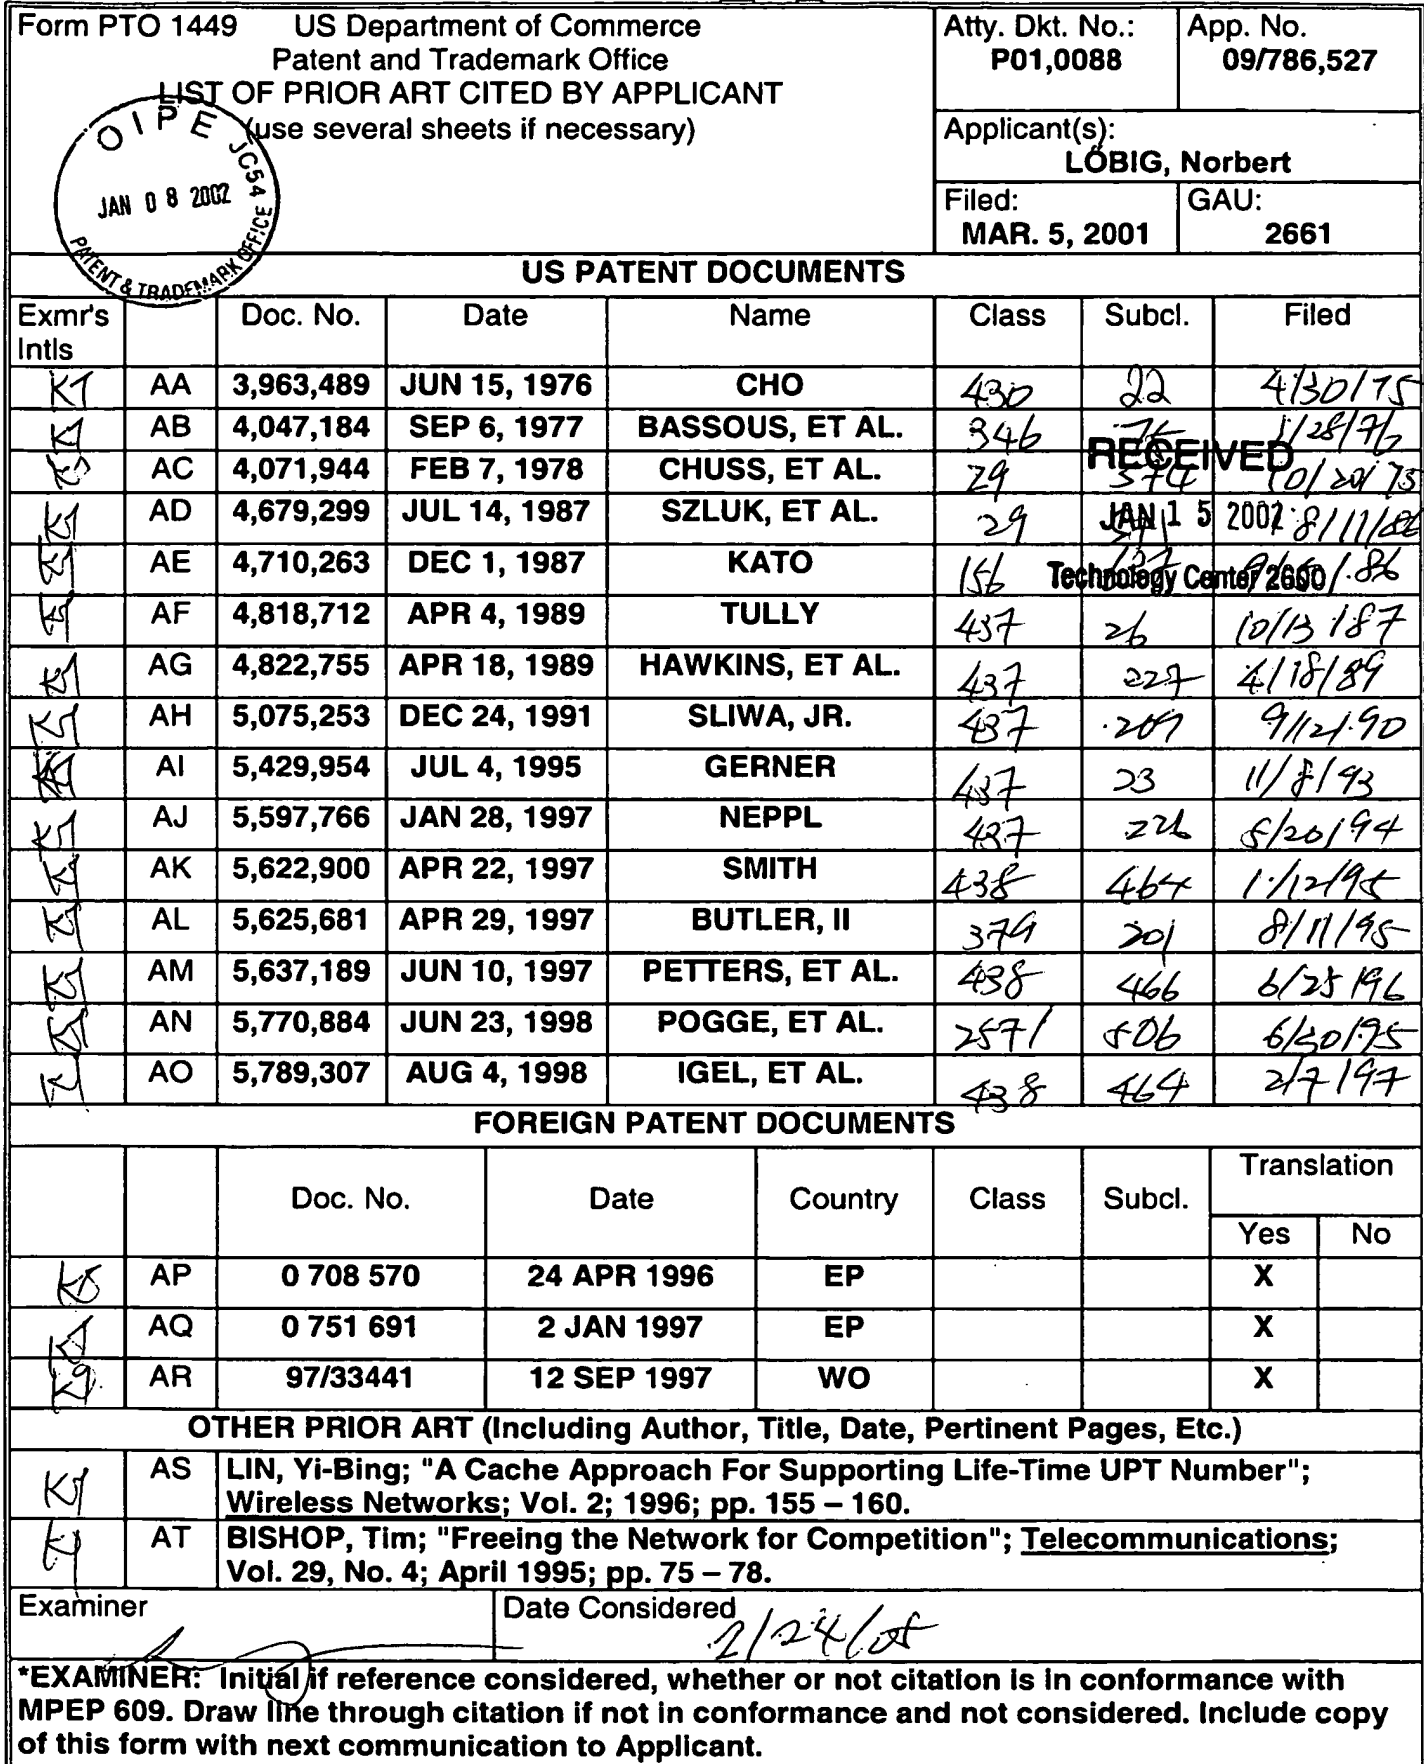 Form PTO 1449 US Department of Commerce
Patent and Trademark Office
LIST OF PRIOR ART CITED BY APPLICANT
(use several sheets if necessary)
Atty. Dkt. No.:
P01,0088
App. No.
09/786,527
Applicant(s):
LÖBIG, Norbert
Filed:
MAR. 5, 2001
GAU:
2661
OIPE JC54
JAN 08 2002
PATENT & TRADEMARK OFFICE
US PATENT DOCUMENTS
Exmr's Intls Doc. No. Date Name Class Subcl. Filed
AA 3,963,489 JUN 15, 1976 CHO 430 22 4/30/75
AB 4,047,184 SEP 6, 1977 BASSOUS, ET AL. 346 1/28/76
RECEIVED
AC 4,071,944 FEB 7, 1978 CHUSS, ET AL. 29 574 10/20/75
AD 4,679,299 JUL 14, 1987 SZLUK, ET AL. 29 8/11/86
JAN 15 2002
AE 4,710,263 DEC 1, 1987 KATO 156
Technology Center 2600
AF 4,818,712 APR 4, 1989 TULLY 437 26 10/13/87
AG 4,822,755 APR 18, 1989 HAWKINS, ET AL. 437 227 4/18/89
AH 5,075,253 DEC 24, 1991 SLIWA, JR. 437 209 9/12/90
AI 5,429,954 JUL 4, 1995 GERNER 437 23 11/8/93
AJ 5,597,766 JAN 28, 1997 NEPPL 437 226 5/20/94
AK 5,622,900 APR 22, 1997 SMITH 438 464 1/12/95
AL 5,625,681 APR 29, 1997 BUTLER, II 379 201 8/11/95
AM 5,637,189 JUN 10, 1997 PETTERS, ET AL. 438 466 6/25/96
AN 5,770,884 JUN 23, 1998 POGGE, ET AL. 257 506 6/30/95
AO 5,789,307 AUG 4, 1998 IGEL, ET AL. 438 464 2/7/97
FOREIGN PATENT DOCUMENTS
Doc. No. Date Country Class Subcl. Translation
Yes No
AP 0 708 570 24 APR 1996 EP X
AQ 0 751 691 2 JAN 1997 EP X
AR 97/33441 12 SEP 1997 WO X
OTHER PRIOR ART (Including Author, Title, Date, Pertinent Pages, Etc.)
AS LIN, Yi-Bing; "A Cache Approach For Supporting Life-Time UPT Number";
Wireless Networks; Vol. 2; 1996; pp. 155 – 160.
AT BISHOP, Tim; "Freeing the Network for Competition"; Telecommunications;
Vol. 29, No. 4; April 1995; pp. 75 – 78.
Examiner Date Considered 2/24/05
*EXAMINER: Initial if reference considered, whether or not citation is in conformance with
MPEP 609. Draw line through citation if not in conformance and not considered. Include copy
of this form with next communication to Applicant.